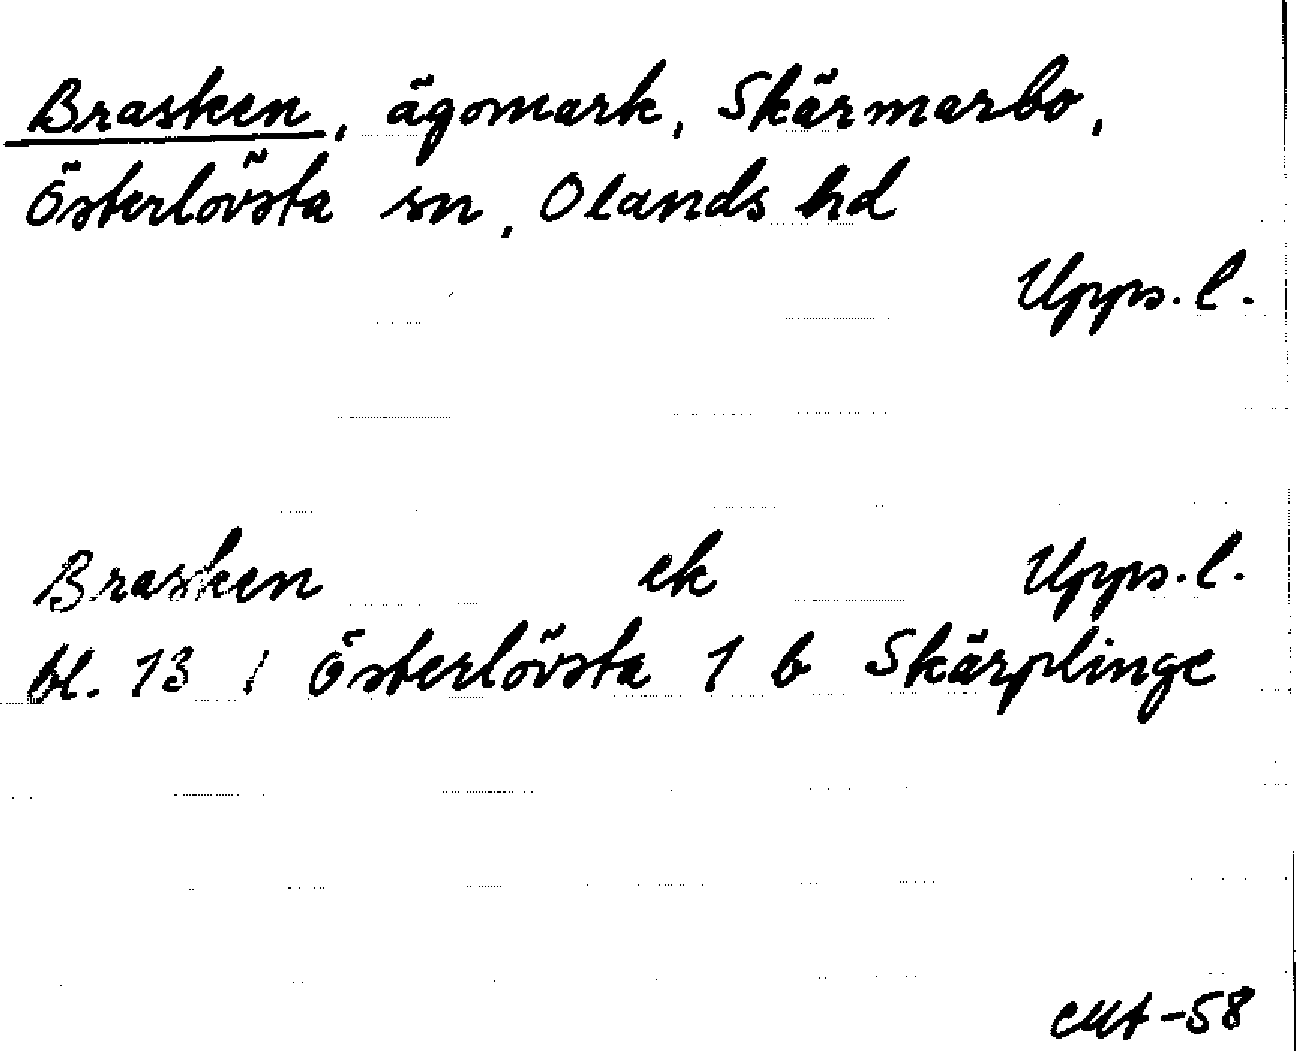 Brasken, ägomark, Skärmarbo,
Österlövsta sn, Olands hd
Upps. l.
Brasken ek Upps. l.
bl. 13 i Österlövsta 1 b Skärplinge
CMA-58